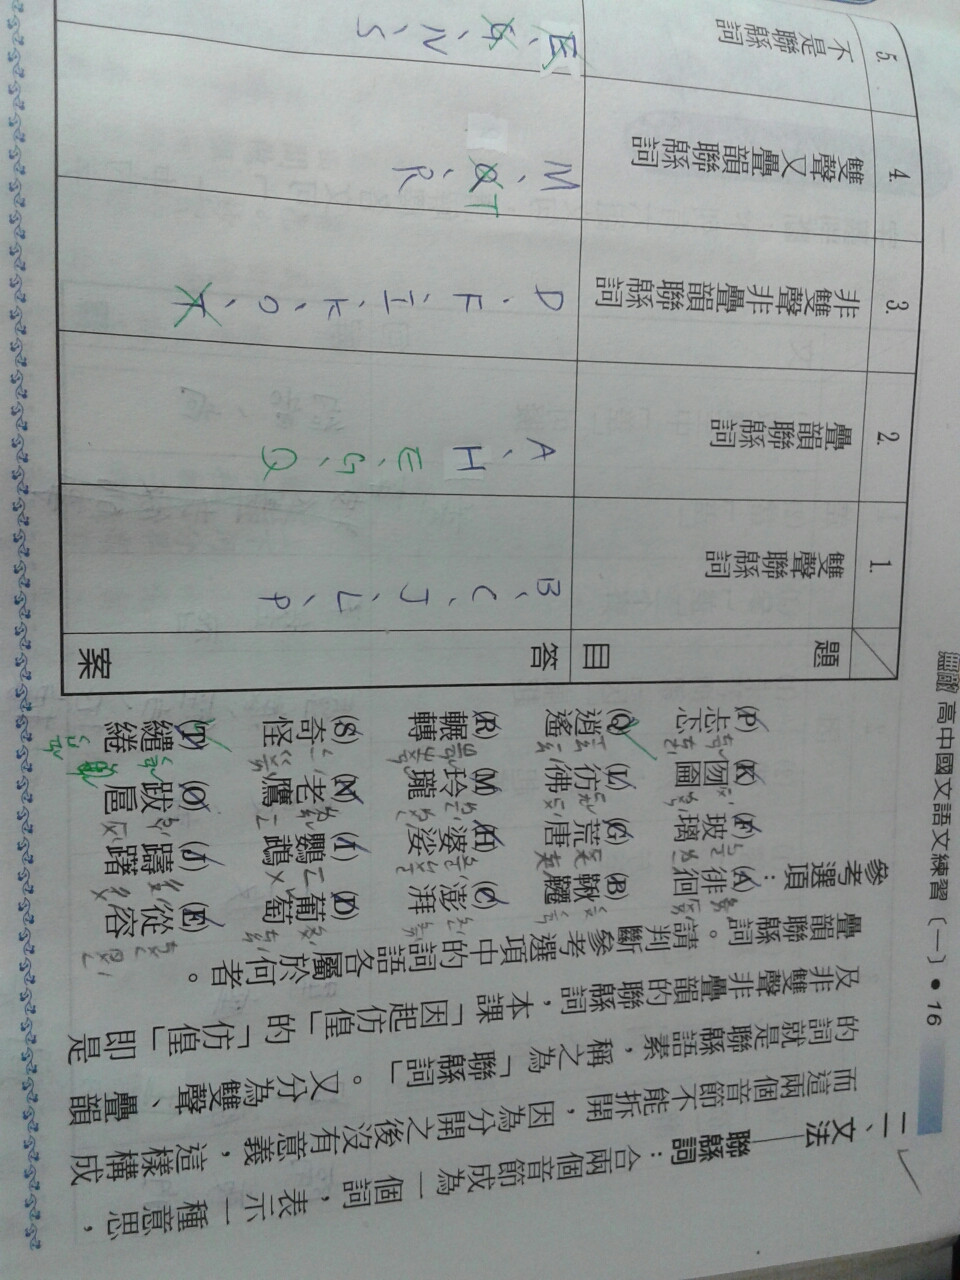 無敵高中國文語文練習〔一〕● 16
二、文法——聯緜詞：合兩個音節成為一個詞，表示一種意思，
而這兩個音節不能拆開，因為分開之後沒有意義，這樣構成
的詞就是聯緜語素，稱之為「聯緜詞」。又分為雙聲、疊韻
及非雙聲非疊韻的聯緜詞，本課「因起仿偟」的「仿偟」即是
疊韻聯緜詞。請判斷參考選項中的詞語各屬於何者。
參考選項：
(A)徘徊 (B)鞦韆 (C)澎湃 (D)葡萄 (E)從容
(F)玻璃 (G)荒唐 (H)婆娑 (I)鸚鵡 (J)躊躇
(K)囫圇 (L)彷彿 (M)玲瓏 (N)老鷹 (O)跋扈
(P)忐忑 (Q)逍遙 (R)輾轉 (S)奇怪 (T)繾綣
題目 答案
1. 雙聲聯緜詞 B、C、J、L、P
2. 疊韻聯緜詞 A、H、E、G、Q
3. 非雙聲非疊韻聯緜詞 D、F、I、K、O、T
4. 雙聲又疊韻聯緜詞 M、Q T、R
5. 不是聯緜詞 E、G、N、S